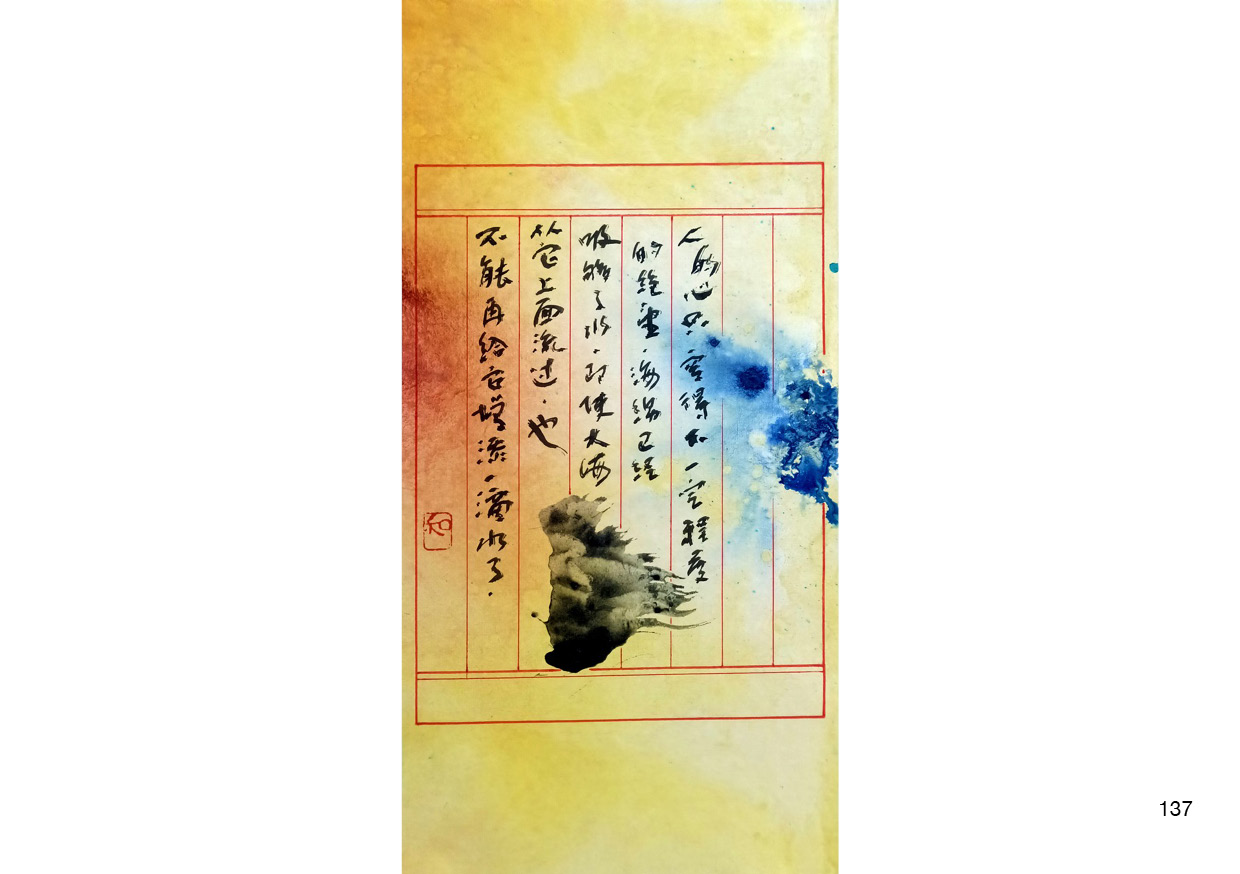 人的心只，容得下一定程度
的绝望，海绵已经
吸够了水，即使大海
从它上面流过，也
不能再给它增添一滴水了。
137